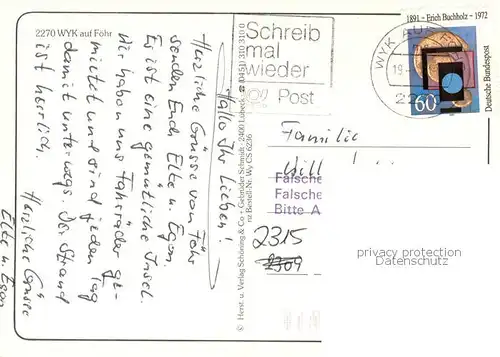 2270 WYK auf Föhr
Hallo Ihr Lieben!
Herzliche Grüsse von Föhr
senden Euch Elke u. Egon.
Es ist eine gemütliche Insel.
Wir haben uns Fahrräder ge-
mietet und sind jeden Tag
damit unterwegs. Der Strand
ist herrlich.
Herzliche Grüsse
Elke u. Egon
© Herst. u. Verlag Schöning & Co + Gebrüder Schmidt · 2400 Lübeck · ☎ (0451) 310 310 0
Bestell-Nr. Wy CS 6236
Schreib
mal
wieder
Post
WYK AUF
1891 – Erich Buchholz – 1972
Deutsche Bundespost
60
Familie
Will
Falsche
Falsche
Bitte A
2315
2309
privacy protection
Datenschutz